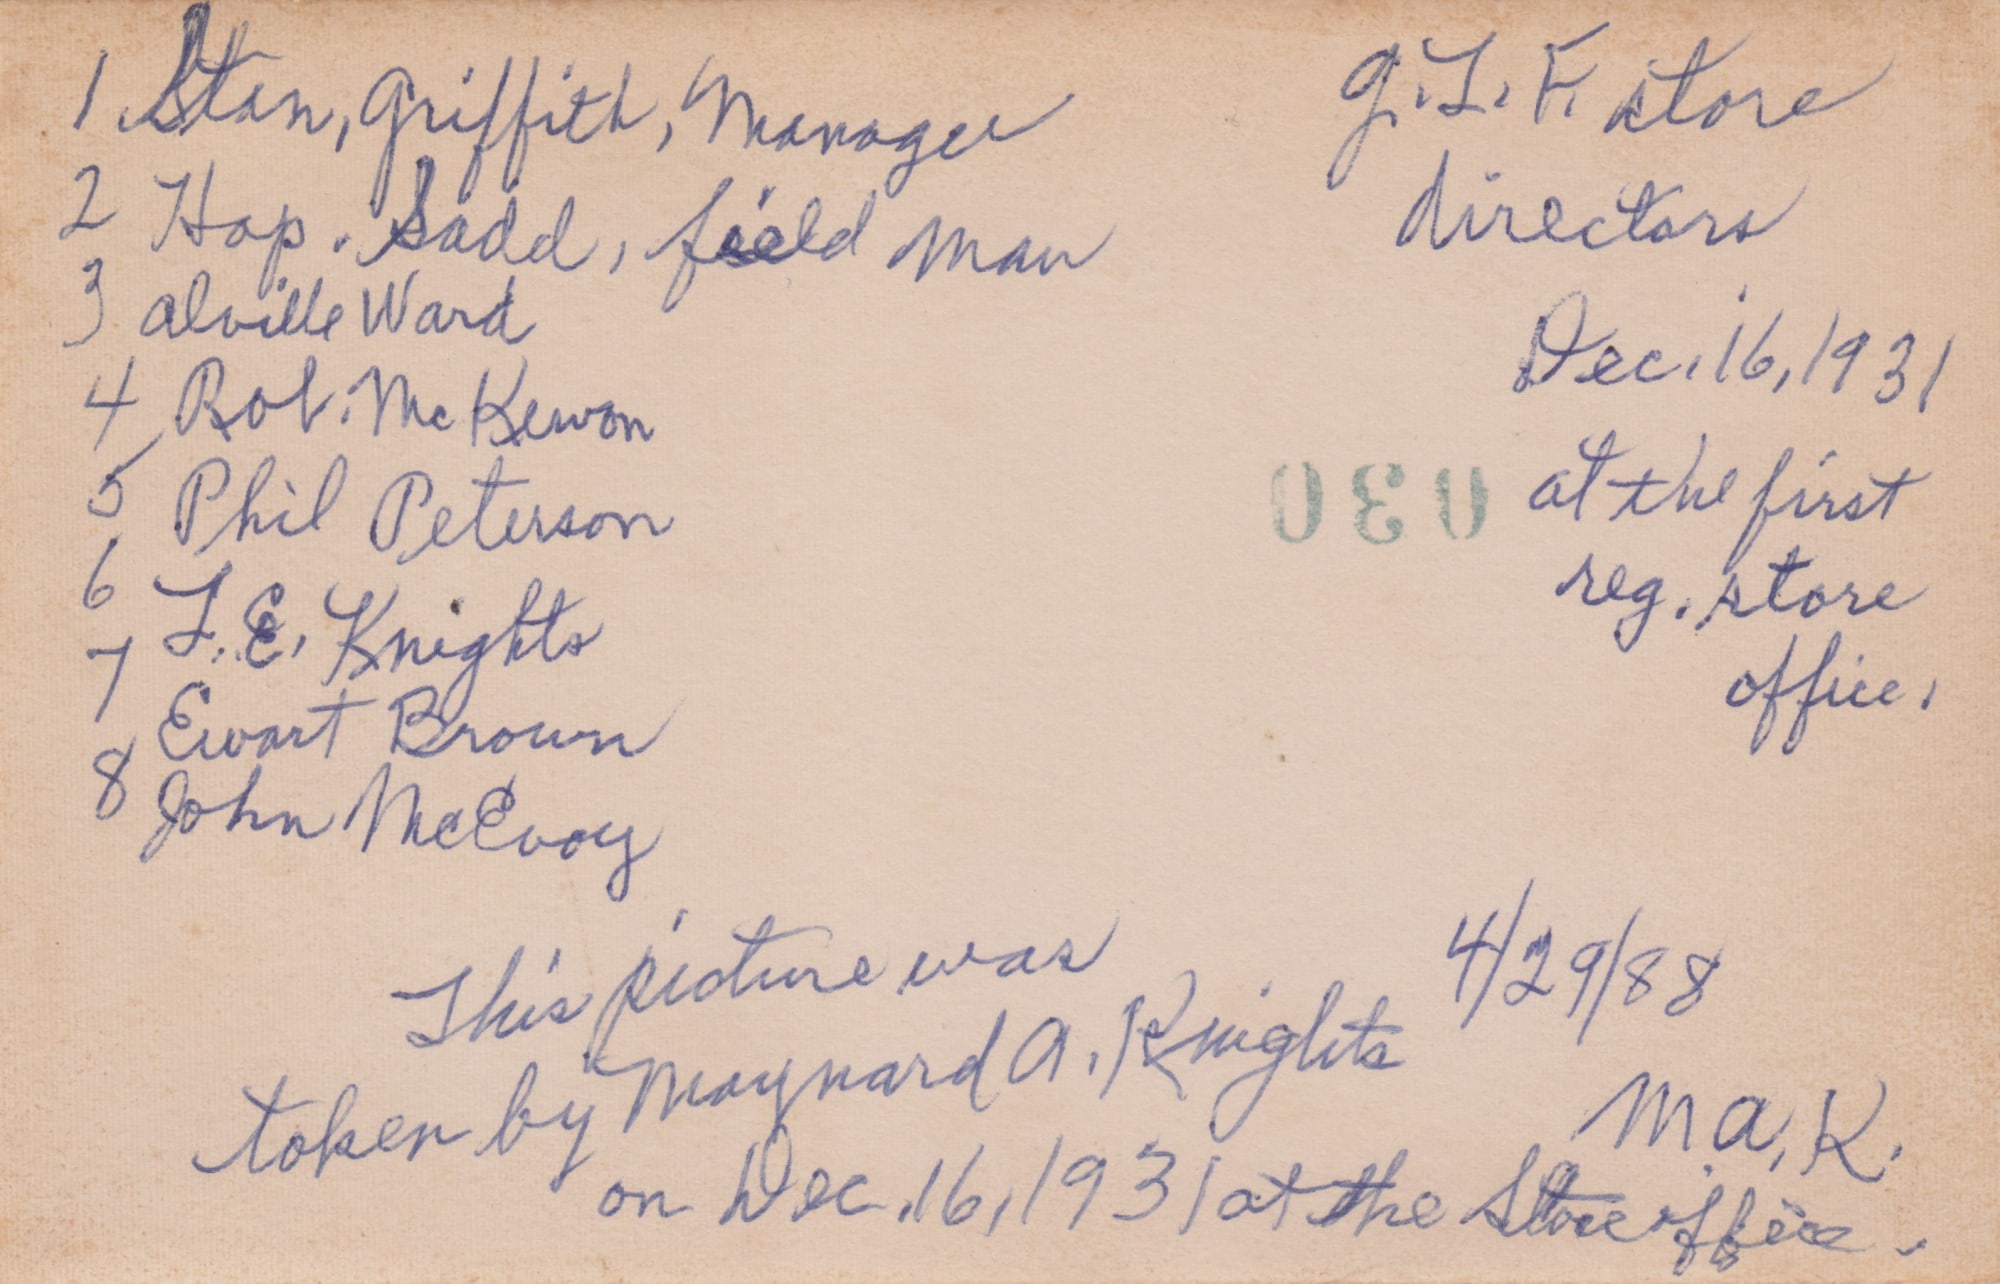 1 Stan, Griffith, Manager
2 Hap. Sadd, field man
3 Alville Ward
4 Rob. McKewon
5 Phil Peterson
6 L. E. Knights
7 Ewart Brown
8 John McEvoy
G. L. F. store
directors
Dec. 16, 1931
at the first
reg. store
office.
030
This picture was
taken by Maynard A. Knights
on Dec. 16, 1931 at the Store office.
4/29/88
M. A. K.